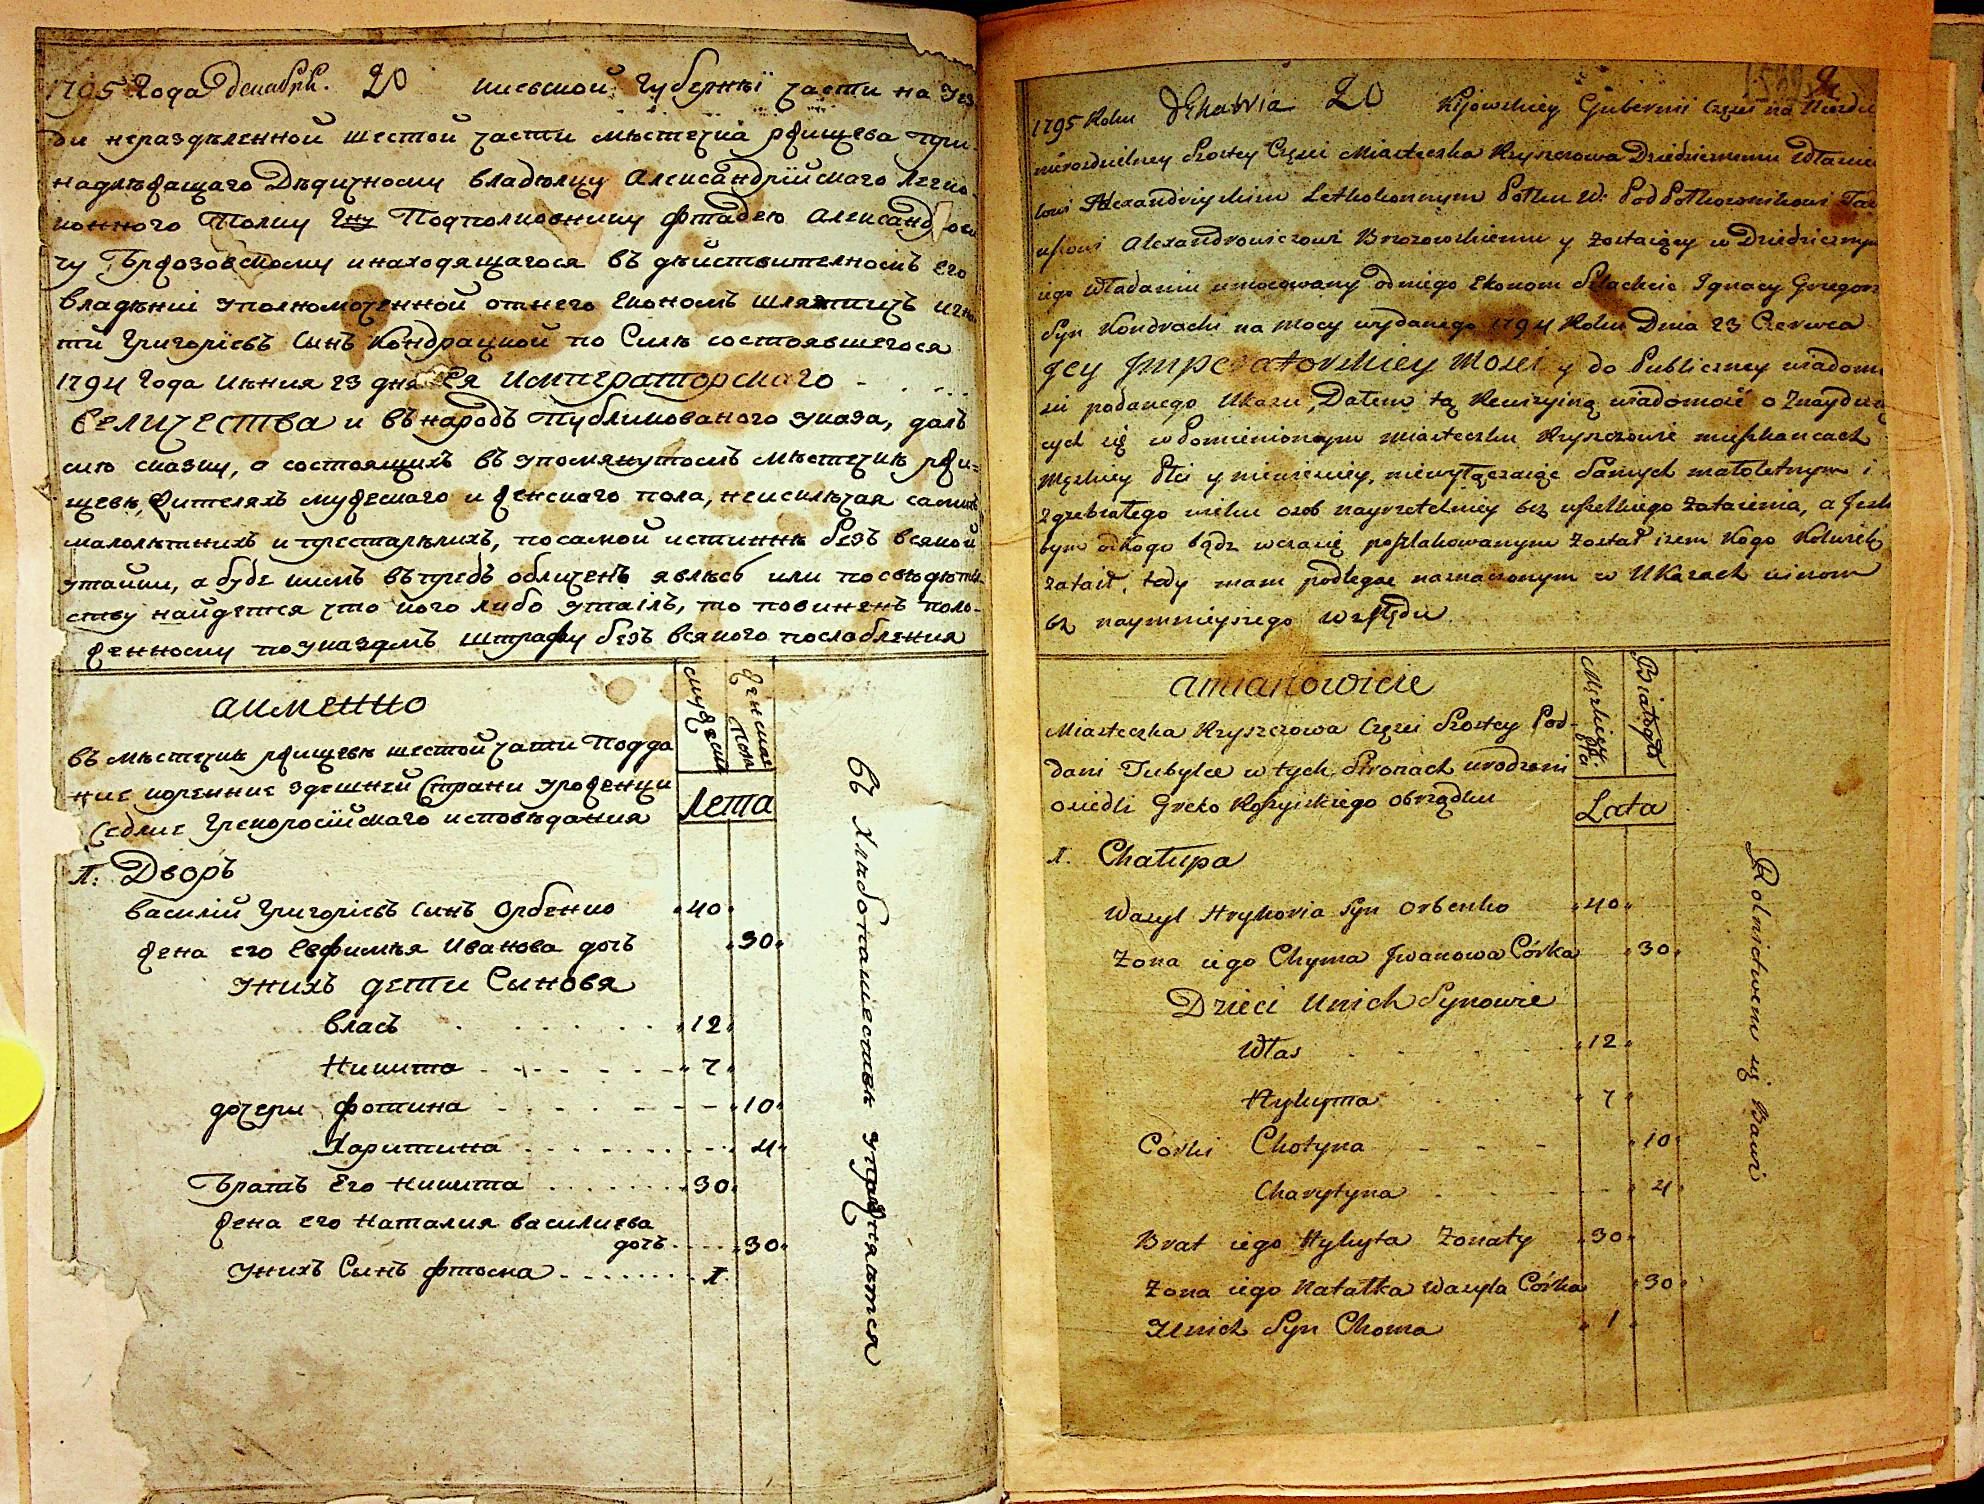 1795 Года декабря. 20 Киевской Губернѣї части на Уез
ди нераздѣленной шестой части мѣстечка Ржищева при
надлѣжащаго Дѣдичному владѣлцу Александрїйскаго Легко
конного Полку Гну Подполковнику Фтадею Александрови
чу Бржозовскому инаходящагося въ дѣйствителномъ его
владѣниї уполномоченной отнего Економъ шляхтичъ Игна
тій Григоріевъ Сынъ Кондрацкой по Силѣ состоявшегося
1794 Года июня 23 дня Ея Императорскаго
Величества и въ народъ Публикованого указа, далъ
сию сказку, о состоящихъ въ упомянутомъ мѣстечкѣ ржи-
щевѣ, жителяхъ мужескаго и женскаго пола, неисключая самихъ
малолѣтнихъ и престарѣлихъ, посамой истиннѣ безъ всякой
утайки, а буде кимъ въпредъ обличенъ явлюсь или по свѣдѣтел
ству найдется что кого либо утаілъ, то повиненъ поло-
женному поуказамъ штрафу безъ всякого послабления
аимѣнно
мужеска
женска пола
въ мѣстечкѣ ржищевѣ шестой части Подда
ние коренние здешней Страни уроженци
Седлие Грекоросїйскаго исповѣдания
Лета
1. Дворъ
василій Григоріевъ сынъ Орбенко 40
жена его Евфимья Иванова дочъ 30
унихъ дети Сыновя
власъ 12
Никита 7
дочери Фотина 10
Харитина 4
Братъ Его Никита 30
жена его Наталия василиева
дочъ 30
унихъ Сынъ Фтома 1
въ хлѣбопашествѣ упражняются
1795 Roku Dekabria 20 Kijowskiey Gubernii Częsci na Uiezdu
nierozdzielney Szostey Częsci Miasteczka Rzyszczowa Dziedzicznemu Właścic
lowi Alexandryiskim Letkokonnym Połku W: Pod Połkownikowi Tad
uszowi Alexandrowiczowi Brzozowskiemu y zostaiący w Dziedzicznym
iego Władaniu umocowany odniego Ekonom Szlachcic Ignacy Grzegorz
Syn Kondracki na Mocy wydanego 1794 Roku Dnia 23 Czerwca
Jey Imperatorskiey Mosci y do Publiczney wiadomo
sci podanego Ukazu, Datem tą Rewizyiną wiadomość o Znayduią
cych się w Pomienionym miasteczku Rzyszczowie mieszkancach
Męzkiey Płci y niewiesciey, niewyłączaiąc Samych małoletnym i
zgrzybiałego wieku osob nayrzetelniey bez wszelkiego Zataienia, a Jesli
bym odkogo bądz wczasię poszlakowanym został izem Kogo Kolwiek
zataił, tedy mam podlegac naznaczonym w Ukazach winom
bez naymnieyszego względu
amianowicie
Męzkiey Płci
Białogło
Miasteczka Rzyszczowa Częsci Szostey Pod-
dani Tubylce w tych Stronach urodzeni
osiedli Greko Rossyiskiego obrządku
Lata
1. Chałupa
Wasyl Hryhoria Syn Orbenko 40
Zona iego Chyma Jwanowa Córka 30
Dzieci Unich Synowie
Włas 12
Mykyta 7
Córki Chotyna 10
Charytyna 4
Brat iego Mykyta Zonaty 30
Zona iego Natałka Wasyla Córka 30
Unich Syn Choma 1
Rolnictwem się Bawi